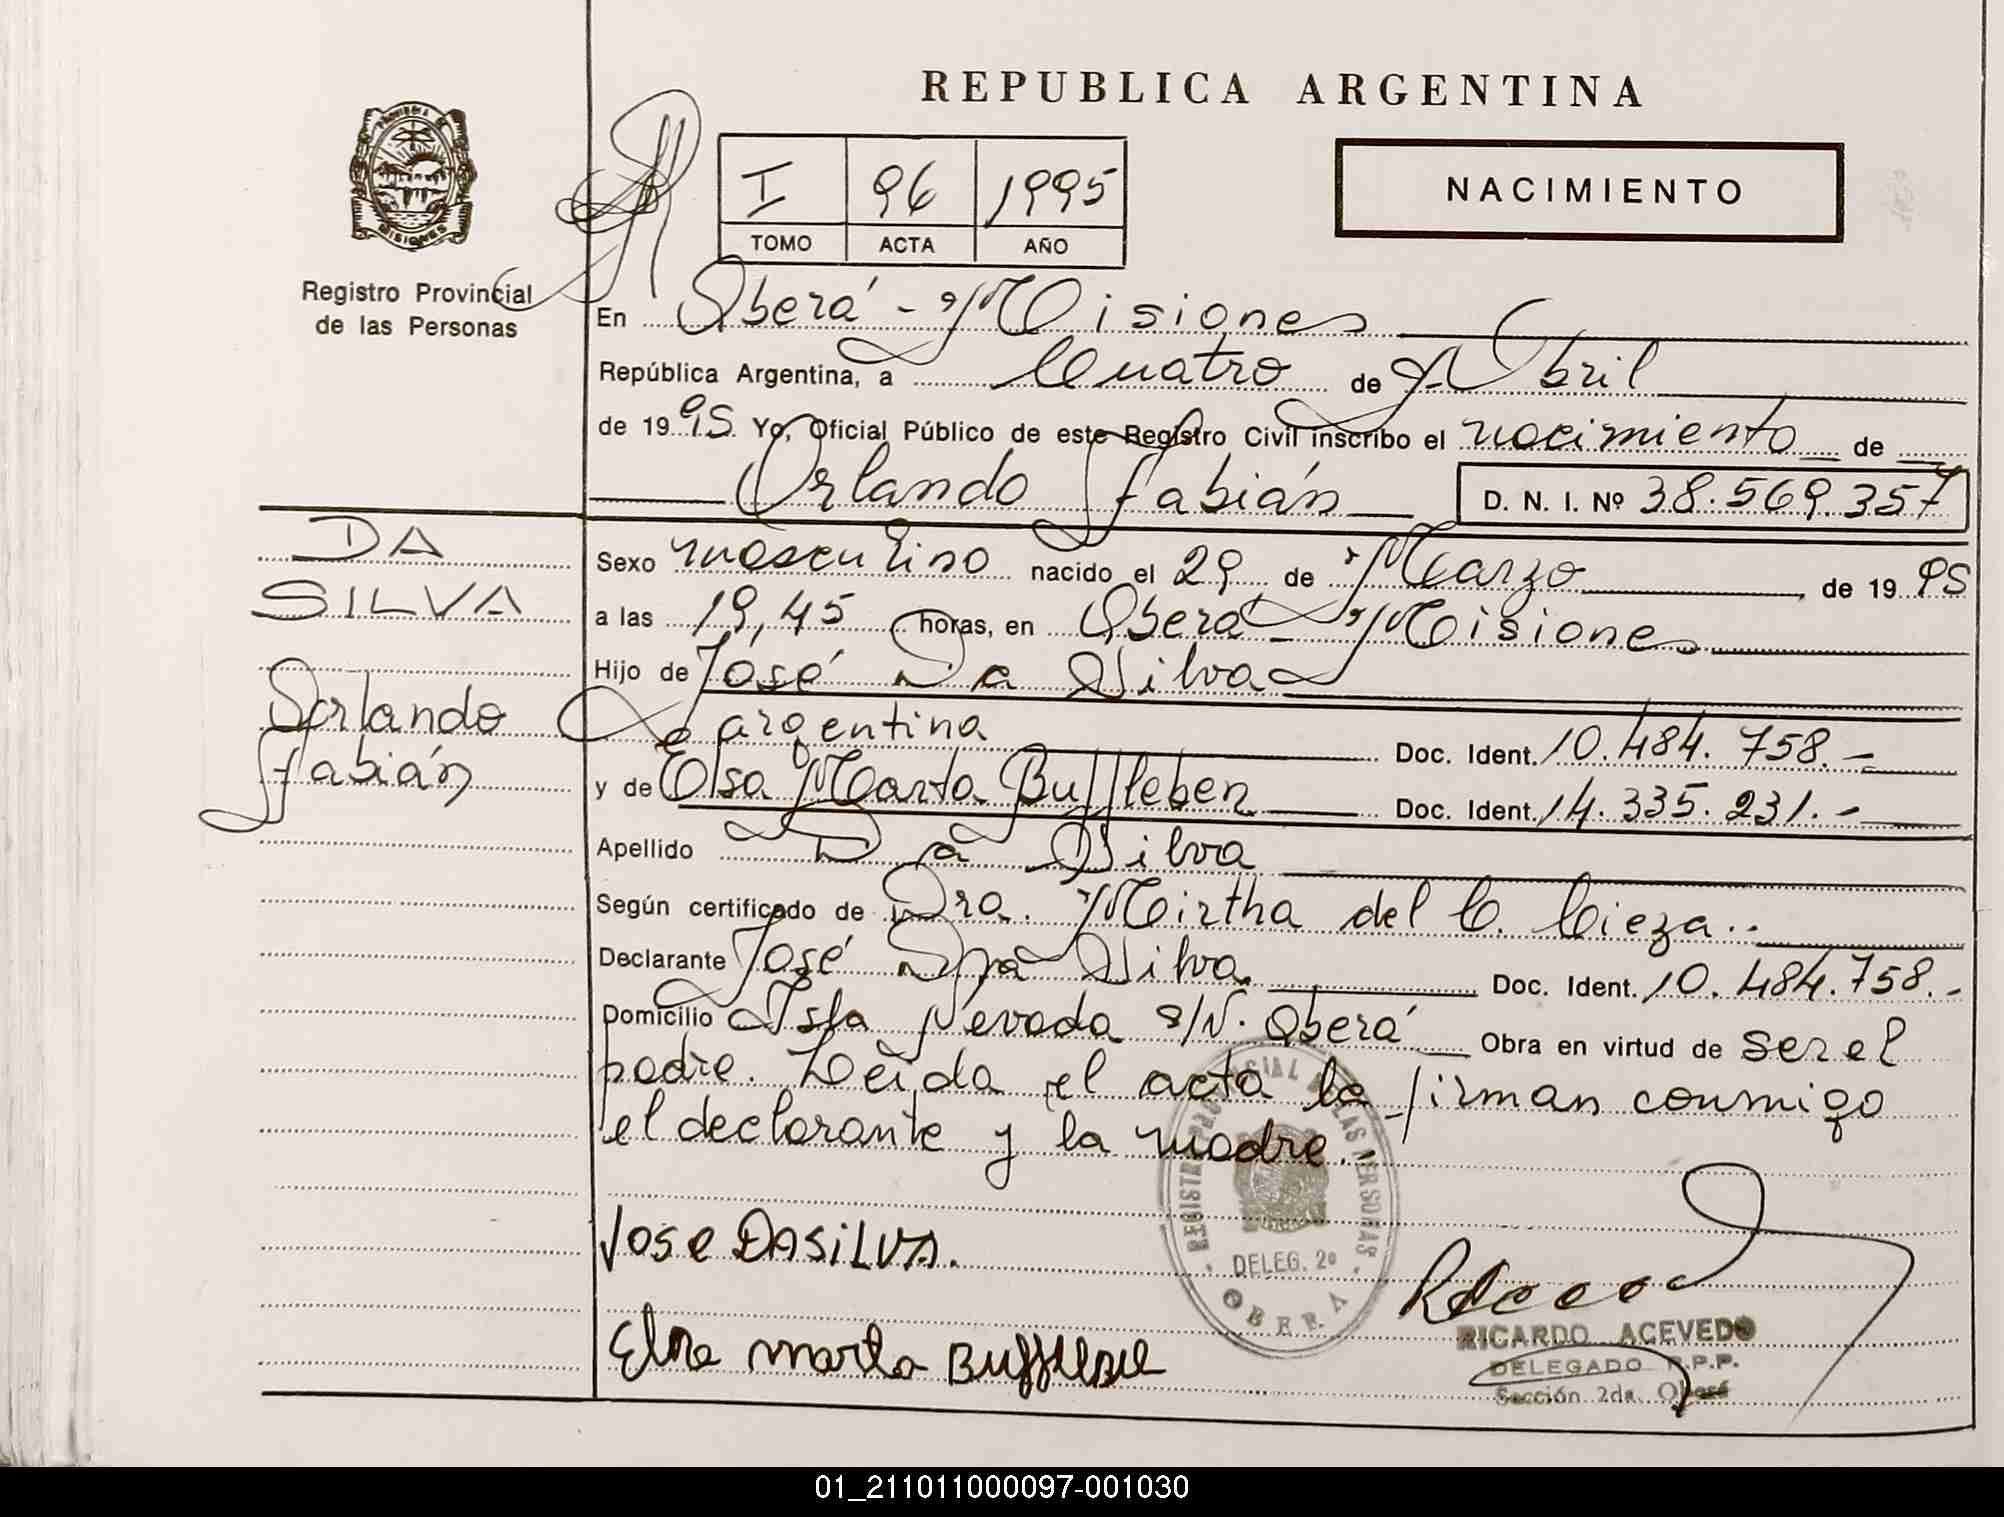 REPUBLICA ARGENTINA
PROVINCIA DE
MISIONES
Registro Provincial
de las Personas
I 96 1995
TOMO ACTA AÑO
NACIMIENTO
En Oberá - Misiones
República Argentina, a Cuatro de Abril
de 1995 Yo, Oficial Público de este Registro Civil inscribo el nacimiento de
Orlando Fabián D. N. I. Nº 38.569.357
DA
SILVA
Orlando
Fabián
Sexo masculino nacido el 29 de Marzo de 1995
a las 19,45 horas, en Oberá - Misiones
Hijo de José Da Silva
argentina Doc. Ident. 10.484.758.-
y de Elsa Marta Buffleben Doc. Ident. 14.335.231.-
Apellido Da Silva
Según certificado de Dra. Mirtha del C. Cieza..
Declarante José Da Silva. Doc. Ident. 10.484.758.-
Domicilio Isla Nevada s/N. Oberá Obra en virtud de ser el
padre. Leída el acta la firman conmigo
el declarante y la madre.-
REGISTRO PROVINCIAL DE LAS PERSONAS
DELEG. 2º
OBERA
JOSE DASILVA.
Elsa marta Buffleben
RICARDO ACEVEDO
DELEGADO R.P.P.
Sección 2da. Oberá
01_211011000097-001030